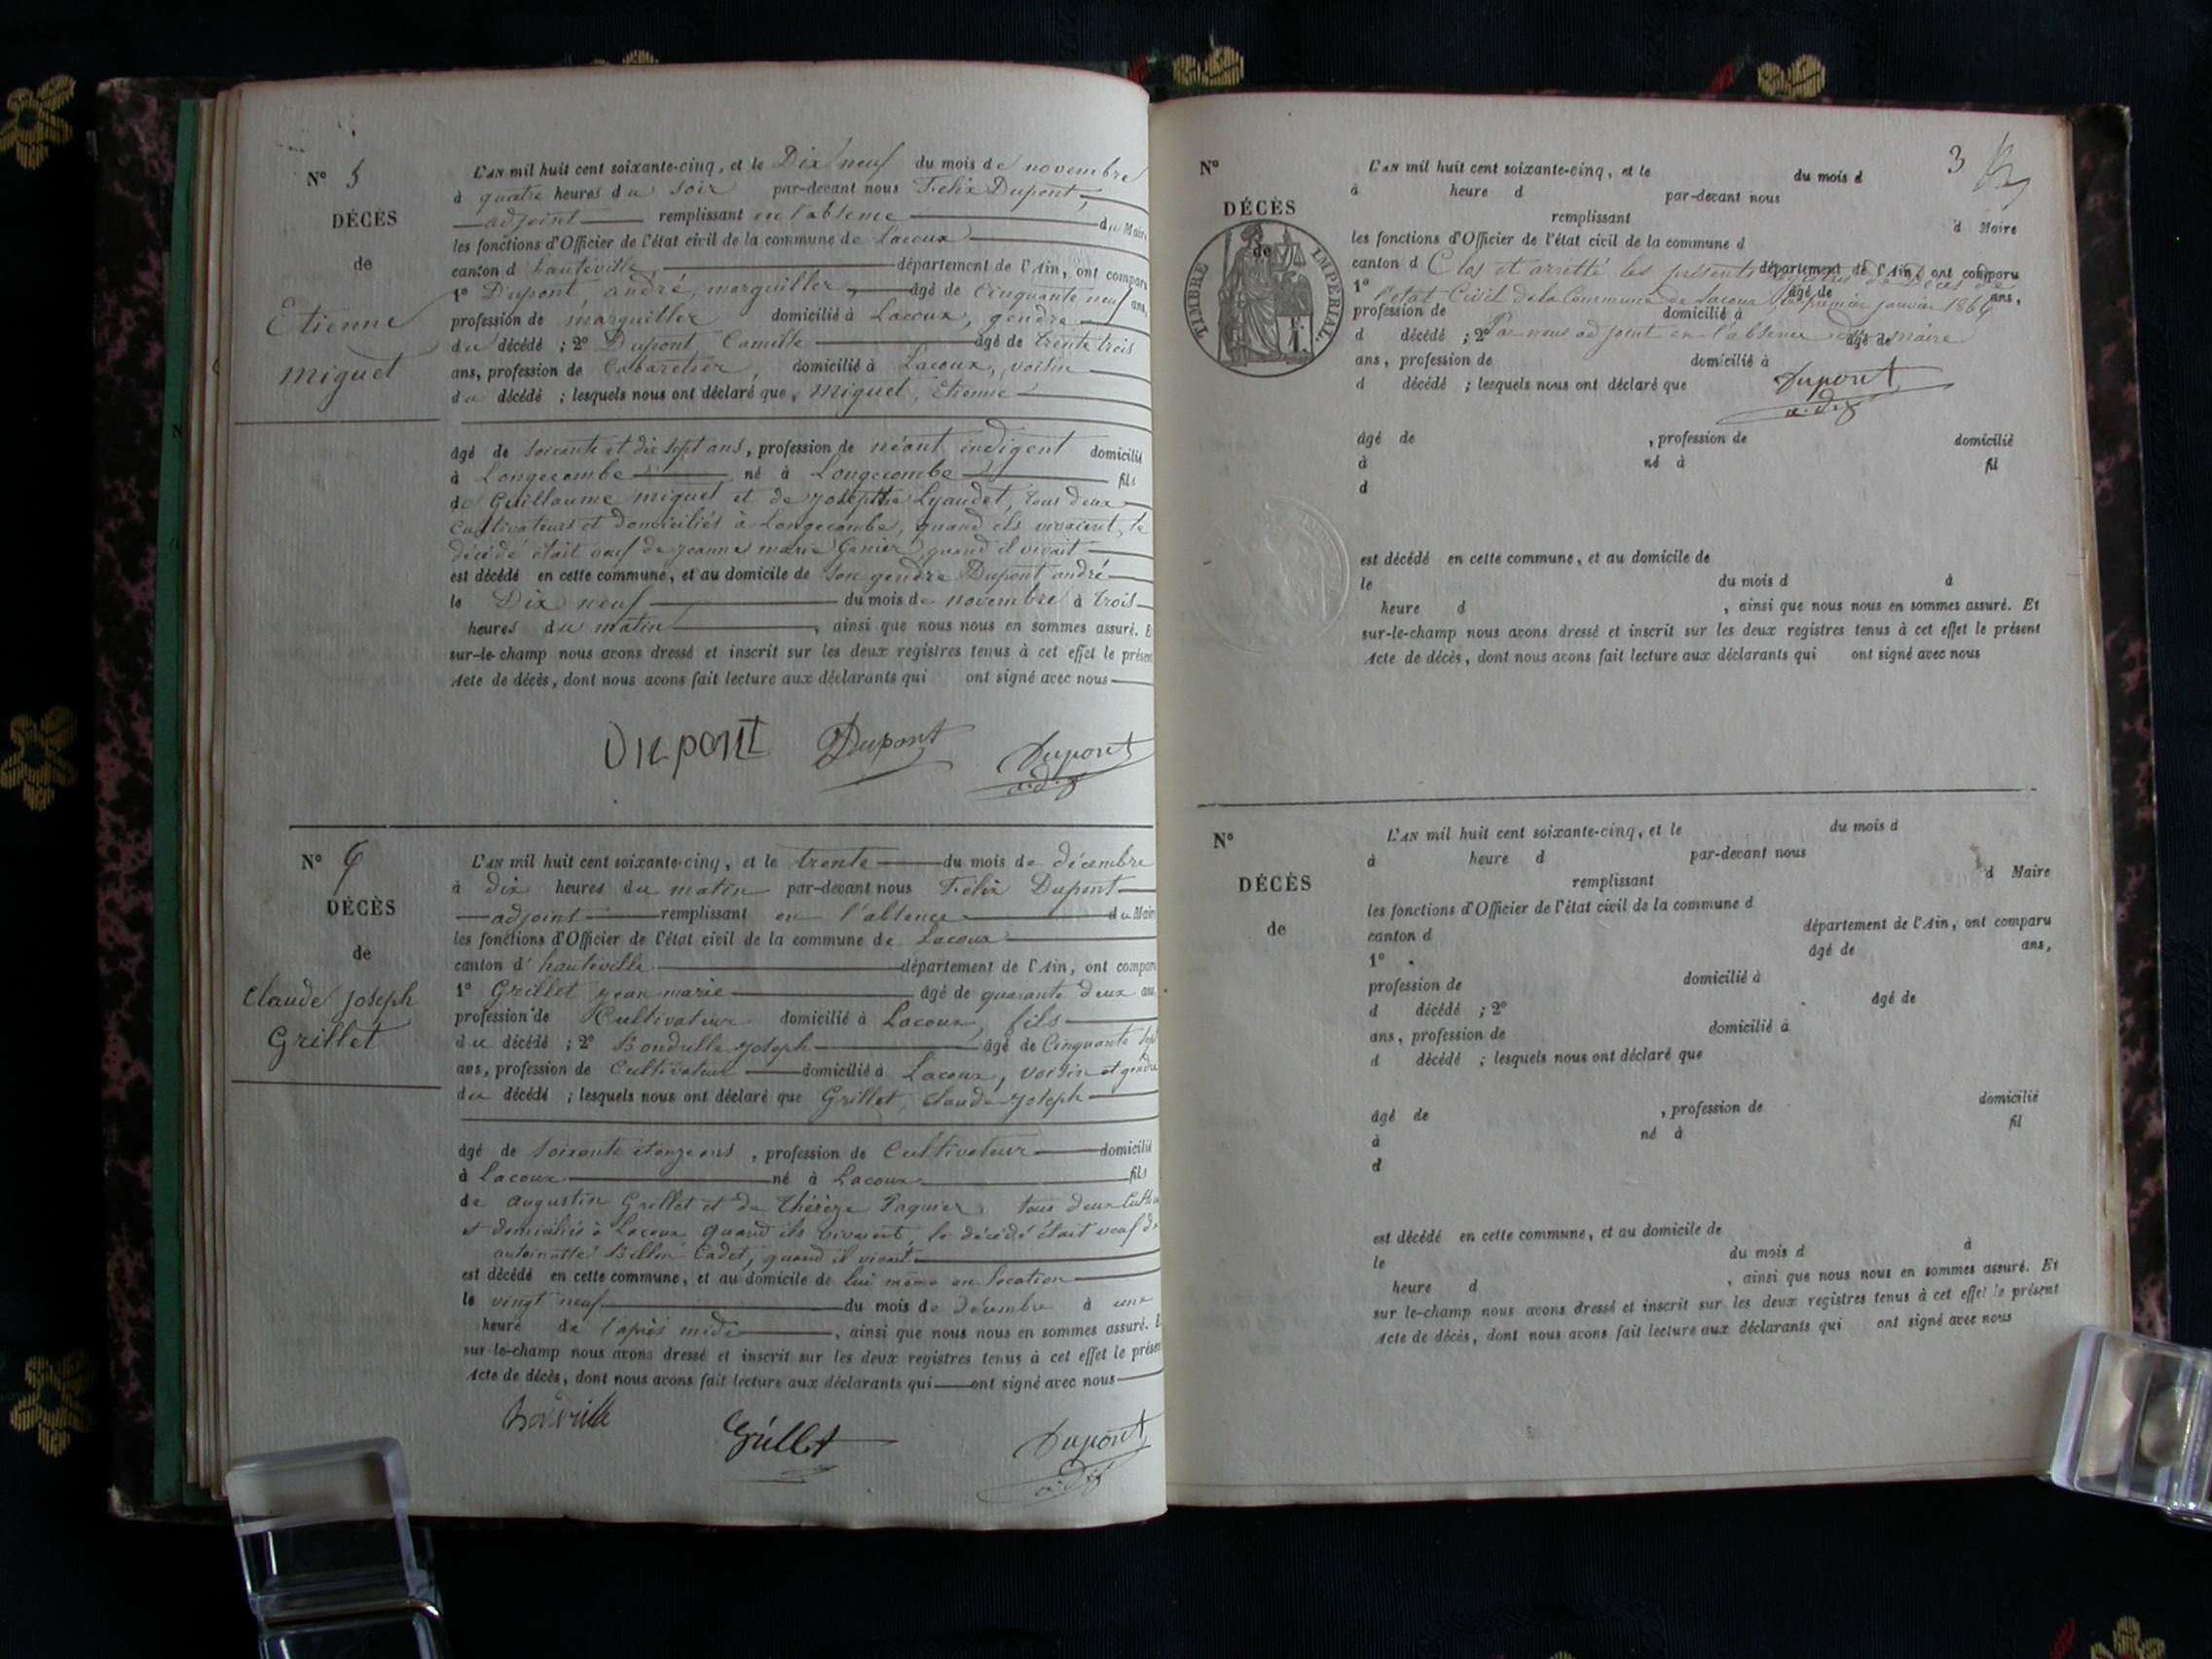 N° 5
DÉCÈS
de
Etienne
miguet
L'AN mil huit cent soixante-cinq, et le Dix neuf du mois de novembre
à quatre heures du soir par-devant nous Felix Dupont,
adjoint remplissant en l'absence du Maire
les fonctions d'Officier de l'état civil de la commune de Lacoux
canton d'hauteville, département de l'Ain, ont comparu
1° Dupont, andré, marguiller, âgé de Cinquante neuf ans,
profession de marguiller domicilié à Lacoux, gendre
du décédé ; 2° Dupont, Camille âgé de trente trois
ans, profession de Cabaretier, domicilié à Lacoux, voisin
du décédé ; lesquels nous ont déclaré que, Miguet, Etienne
âgé de soixante et dix sept ans, profession de néant indigent domicilié
à Longecombe né à Longecombe fils
de Guillaume miguet et de josephte Lyaudet, tous deux
Cultivateurs et domiciliés à Longecombe, quand ils vivaient, le
décédé était veuf de jeanne marie quand il vivait
est décédé en cette commune, et au domicile de son gendre Dupont andré
le Dix neuf du mois de novembre à trois
heures du matin, ainsi que nous nous en sommes assuré. E
sur-le-champ nous avons dressé et inscrit sur les deux registres tenus à cet effet le présen
Acte de décès, dont nous avons fait lecture aux déclarants qui ont signé avec nous
Dupont Dupont Dupont
adj
N° 6
DÉCÈS
de
Claude joseph
Grillet
L'AN mil huit cent soixante-cinq, et le trente du mois de décembre
à dix heures du matin par-devant nous Felix Dupont
adjoint remplissant en l'absence du Maire
les fonctions d'Officier de l'état civil de la commune de Lacoux
canton d'hauteville département de l'Ain, ont compar
1° Grillet jean marie âgé de quarante deux ans
profession de Cultivateur domicilié à Lacoux, fils
du décédé ; 2° Bondrille joseph âgé de Cinquante sept
ans, profession de Cultivateur domicilié à Lacoux, voisin et gendre
du décédé ; lesquels nous ont déclaré que Grillet, Claude joseph
âgé de soixante et onze ans, profession de Cultivateur domicilié
à Lacoux né à Lacoux fils
de augustin Grillet et de Thérèze Paquier tous deux Cultiv
et domiciliés à Lacoux quand ils vivaient, le décédé était veuf de
antoinette Billon Cadet, quand il vivait
est décédé en cette commune, et au domicile de lui même en location
le vingt neuf du mois de décembre à une
heure de l'après midi, ainsi que nous nous en sommes assuré. E
sur-le-champ nous avons dressé et inscrit sur les deux registres tenus à cet effet le présen
Acte de décès, dont nous avons fait lecture aux déclarants qui ont signé avec nous
Bondrille Grillet Dupont
adj
3
N°
DÉCÈS
de
TIMBRE IMPÉRIAL.
L'AN mil huit cent soixante-cinq, et le du mois d
à heure d par-devant nous
remplissant d Maire
les fonctions d'Officier de l'état civil de la commune d
canton d département de l'Ain, ont comparu
Clos et arretté les présents de Décès de
1° âgé de ans,
l'etat Civil de la Commune de Lacoux le premier janvier 1866
profession de domicilié à
d décédé ; 2° âgé de
Par nous adjoint en l'absence du maire
ans, profession de domicilié à
d décédé ; lesquels nous ont déclaré que
Dupont
adj
âgé de , profession de domicilié
à né à fil
d
est décédé en cette commune, et au domicile de
le du mois d à
heure d , ainsi que nous nous en sommes assuré. Et
sur-le-champ nous avons dressé et inscrit sur les deux registres tenus à cet effet le présent
Acte de décès, dont nous avons fait lecture aux déclarants qui ont signé avec nous
N°
DÉCÈS
de
L'AN mil huit cent soixante-cinq, et le du mois d
à heure d par-devant nous
remplissant d Maire
les fonctions d'Officier de l'état civil de la commune d
canton d département de l'Ain, ont comparu
1° âgé de ans,
profession de domicilié à
d décédé ; 2° âgé de
ans, profession de domicilié à
d décédé ; lesquels nous ont déclaré que
âgé de , profession de domicilié
à né à fil
d
est décédé en cette commune, et au domicile de
le du mois d à
heure d , ainsi que nous nous en sommes assuré. Et
sur le-champ nous avons dressé et inscrit sur les deux registres tenus à cet effet le présent
Acte de décès, dont nous avons fait lecture aux déclarants qui ont signé avec nous